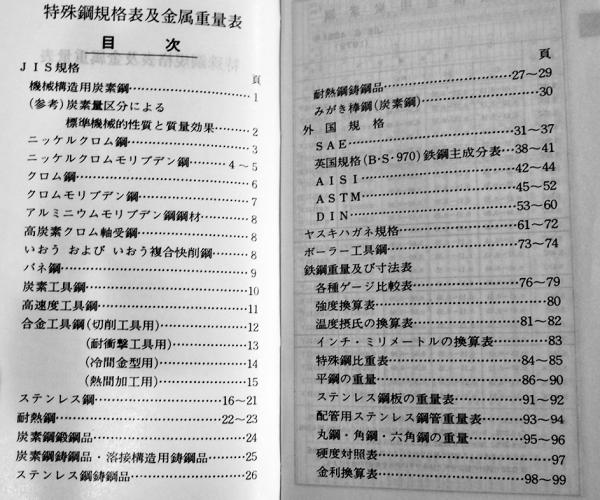 特殊鋼規格表及金属重量表
目 次
頁
JIS規格
機械構造用炭素鋼…………………1
(参考)炭素量区分による
標準機械的性質と質量効果………2
ニッケルクロム鋼…………………3
ニッケルクロムモリブデン鋼………4～5
クロム鋼……………………………6
クロムモリブデン鋼………………7
アルミニウムモリブデン鋼鋼材……8
高炭素クロム軸受鋼………………8
いおう および いおう複合快削鋼……8
バネ鋼………………………………9
炭素工具鋼…………………………10
高速度工具鋼………………………11
合金工具鋼(切削工具用)…………12
(耐衝撃工具用)…………13
(冷間金型用)……………14
(熱間加工用)……………15
ステンレス鋼………………………16～21
耐熱鋼………………………………22～23
炭素鋼鍛鋼品………………………24
炭素鋼鋳鋼品・溶接構造用鋳鋼品……25
ステンレス鋼鋳鋼品………………26
頁
耐熱鋼鋳鋼品………………………27～29
みがき棒鋼(炭素鋼)………………30
外国規格
SAE…………………………………31～37
英国規格(B・S・970)鉄鋼主成分表…38～41
AISI…………………………………42～44
ASTM………………………………45～52
DIN…………………………………53～60
ヤスキハガネ規格…………………61～72
ボーラー工具鋼……………………73～74
鉄鋼重量及び寸法表
各種ゲージ比較表…………………76～79
強度換算表…………………………80
温度摂氏の換算表…………………81～82
インチ・ミリメートルの換算表……83
特殊鋼比重表………………………84～85
平鋼の重量…………………………86～90
ステンレス鋼板の重量表…………91～92
配管用ステンレス鋼管重量表……93～94
丸鋼・角鋼・六角鋼の重量………95～96
硬度対照表…………………………97
金利換算表…………………………98～99